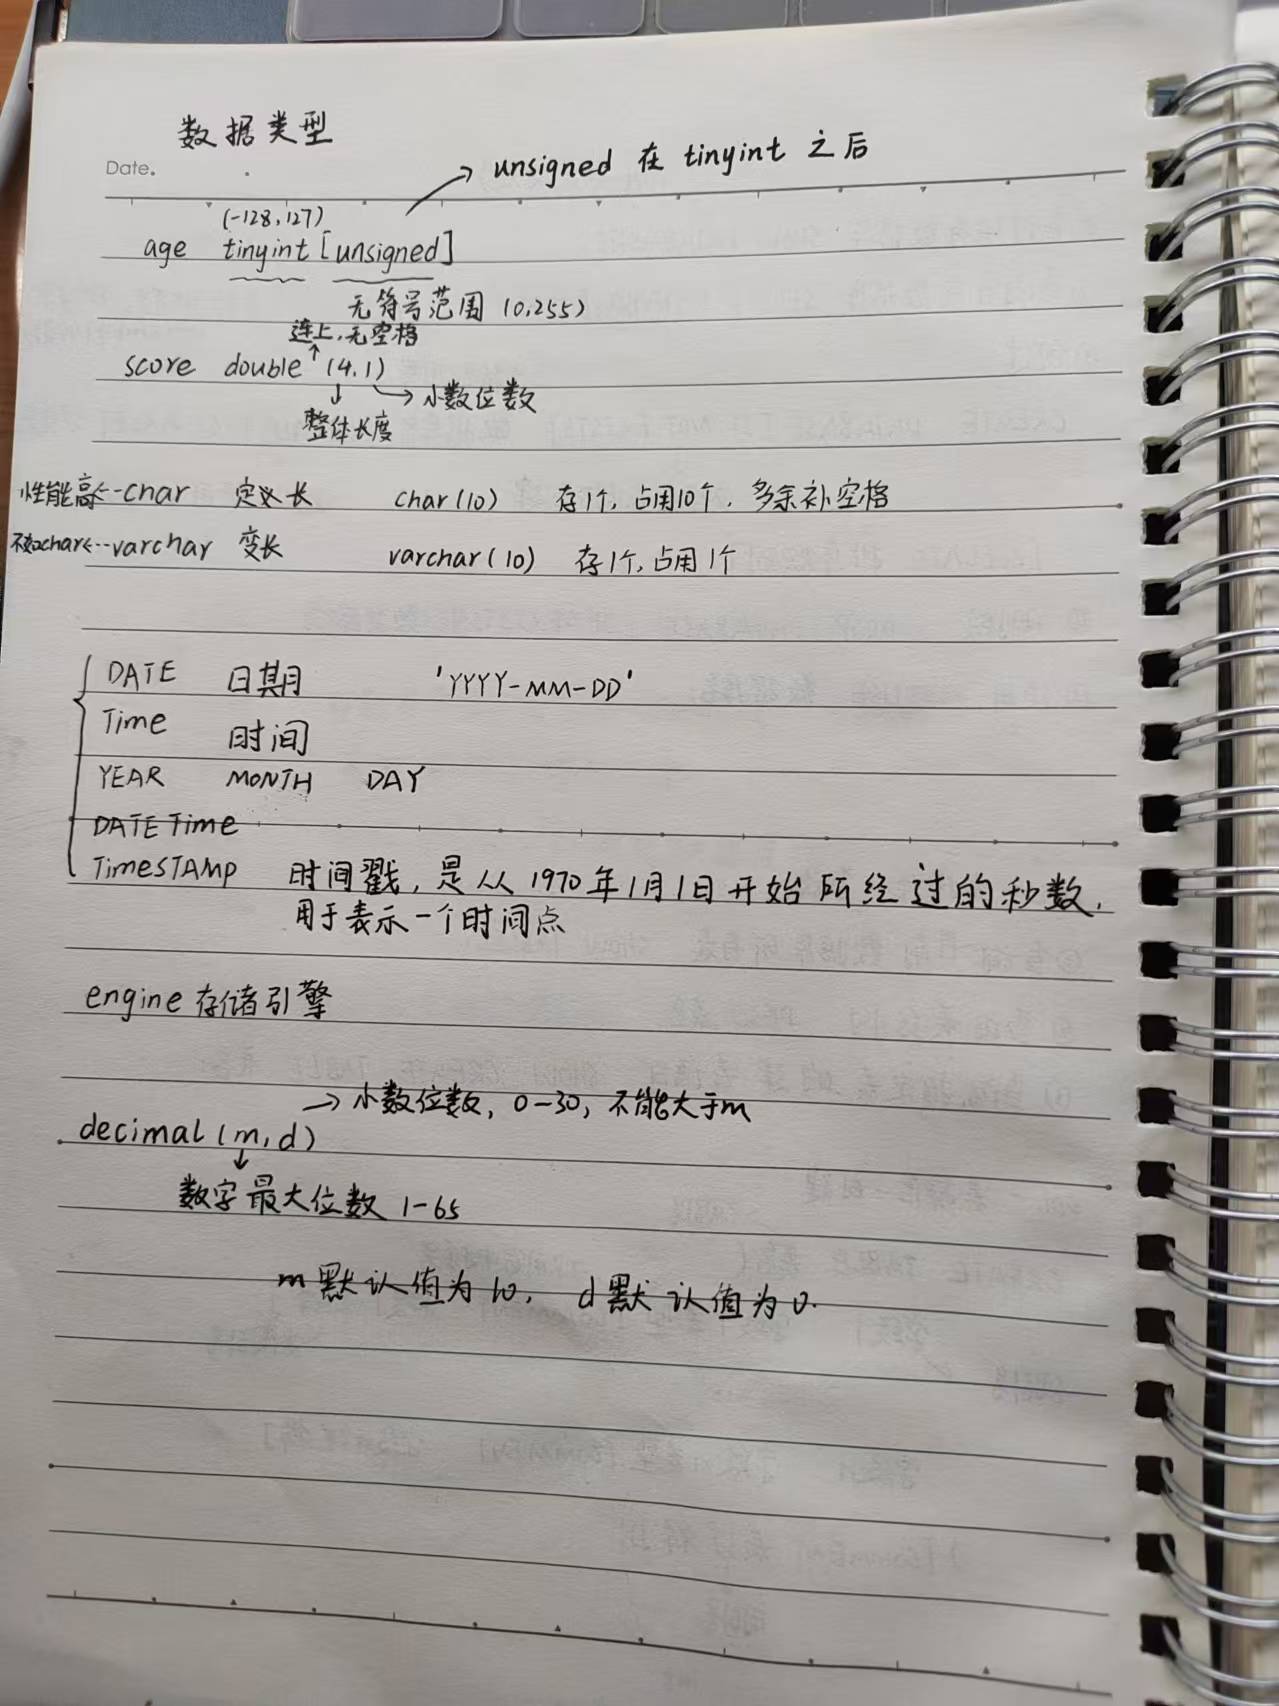 数据类型
Date.
→ unsigned 在 tinyint 之后
(-128,127)
age tinyint [unsigned]
无符号范围 (0,255)
连上,无空格
score double (4,1)
→ 小数位数
整体长度
性能高←--char 定义长 char(10) 存1个,占用10个,多余补空格
不如char←--varchar 变长 varchar(10) 存1个,占用1个
DATE 日期 'YYYY-MM-DD'
Time 时间
YEAR MONTH DAY
DATETime
TimeSTAmp 时间戳,是从1970年1月1日开始所经过的秒数,
用于表示一个时间点
engine 存储引擎
→ 小数位数, 0-30, 不能大于m
decimal(m,d)
数字最大位数 1-65
m默认值为10, d默认值为0.